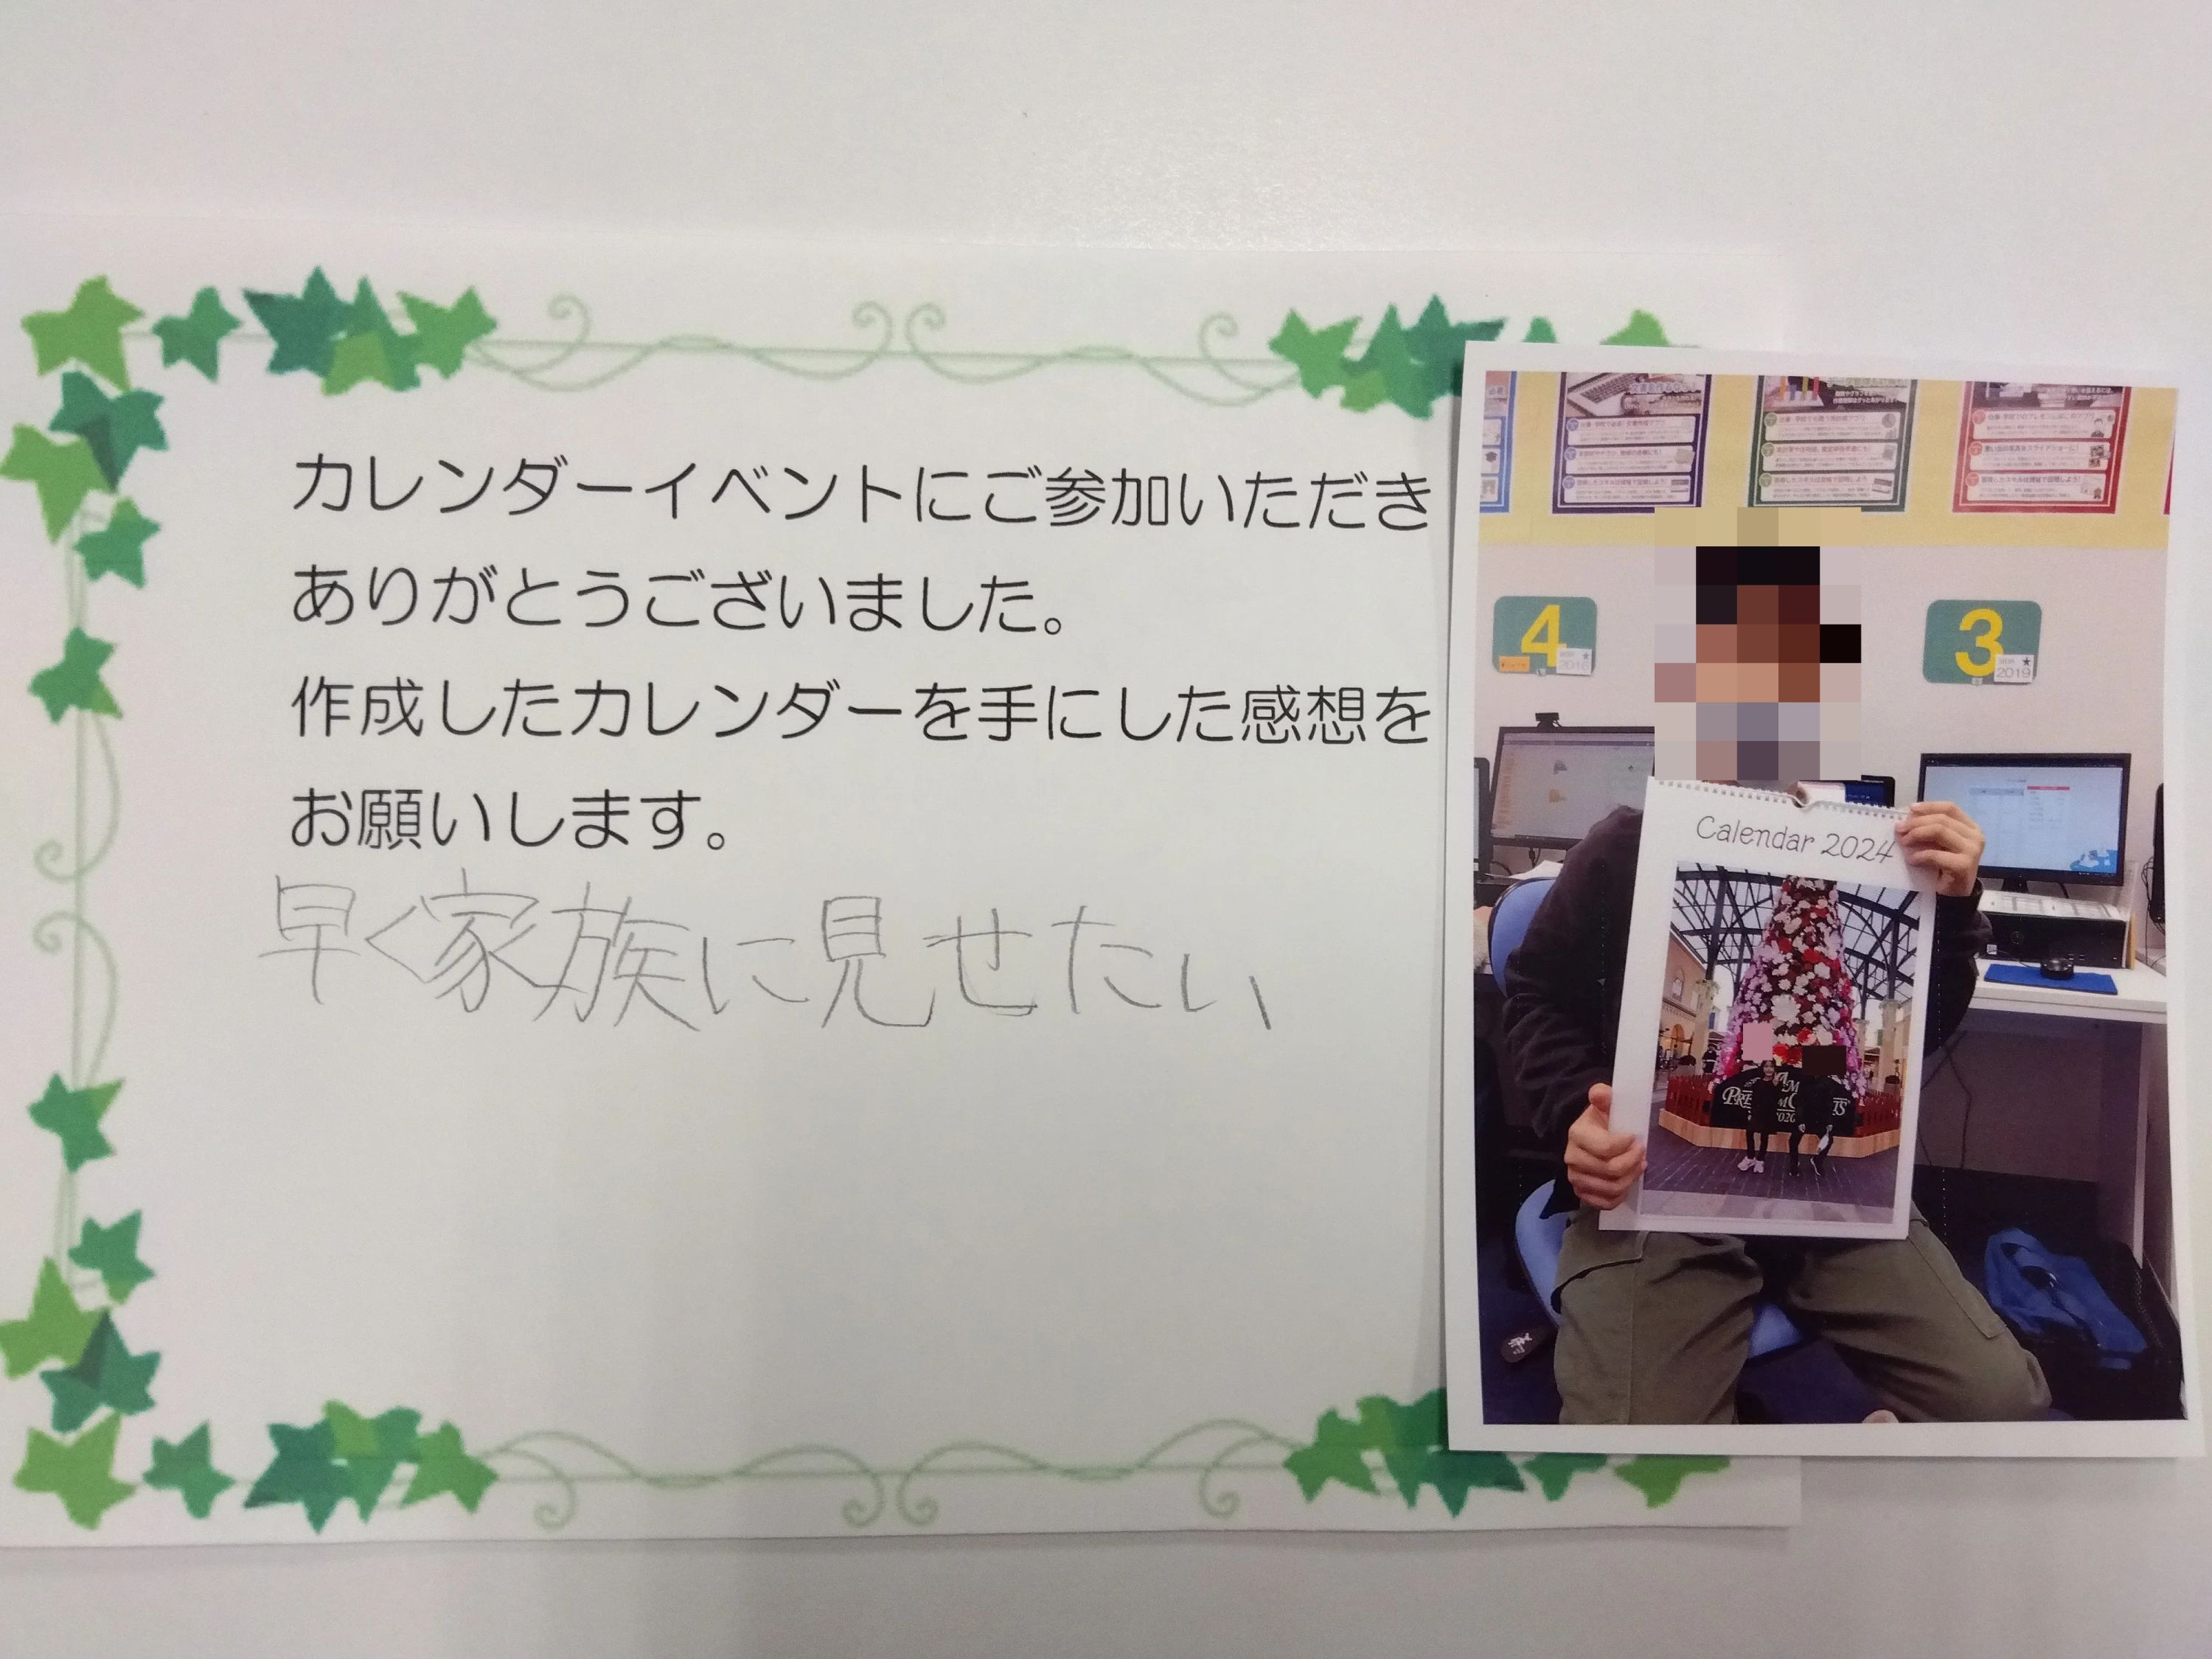 カレンダーイベントにご参加いただき
ありがとうございました。
作成したカレンダーを手にした感想を
お願いします。
早く家族に見せたい
4
3
2019
Calendar 2024